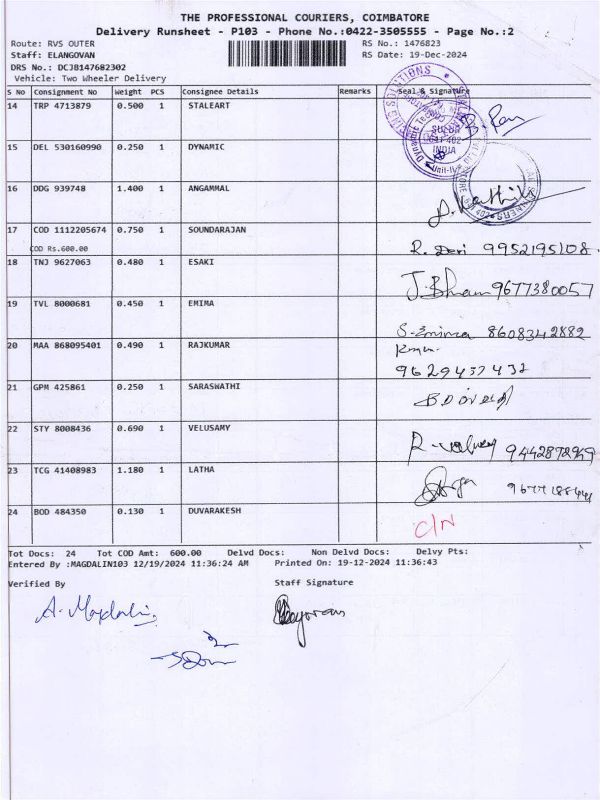 THE PROFESSIONAL COURIERS, COIMBATORE
Delivery Runsheet - P103 - Phone No.:0422-3505555 - Page No.:2
Route: RVS OUTER RS No.: 1476823
Staff: ELANGOVAN RS Date: 19-Dec-2024
DRS No.: DCJ8147682302
Vehicle: Two Wheeler Delivery
S No Consignment No Weight PCS Consignee Details Remarks Seal & Signature
14 TRP 4713879 0.500 1 STALEART
15 DEL 530160990 0.250 1 DYNAMIC
SULUR
INDIA
Unit-IV
16 DDG 939748 1.400 1 ANGAMMAL
17 COD 1112205674 0.750 1 SOUNDARAJAN
COD Rs.600.00 R. Devi 9952195108
18 TNJ 9627063 0.480 1 ESAKI
9677380057
19 TVL 8000681 0.450 1 EMIMA
S. Emima 8608342882
20 MAA 868095401 0.490 1 RAJKUMAR
9629437432
21 GPM 425861 0.250 1 SARASWATHI
22 STY 8008436 0.690 1 VELUSAMY
23 TCG 41408983 1.180 1 LATHA
24 BOD 484350 0.130 1 DUVARAKESH
C/N
Tot Docs: 24 Tot COD Amt: 600.00 Delvd Docs: Non Delvd Docs: Delvy Pts:
Entered By :MAGDALIN103 12/19/2024 11:36:24 AM Printed On: 19-12-2024 11:36:43
Verified By Staff Signature
A. Magdalin